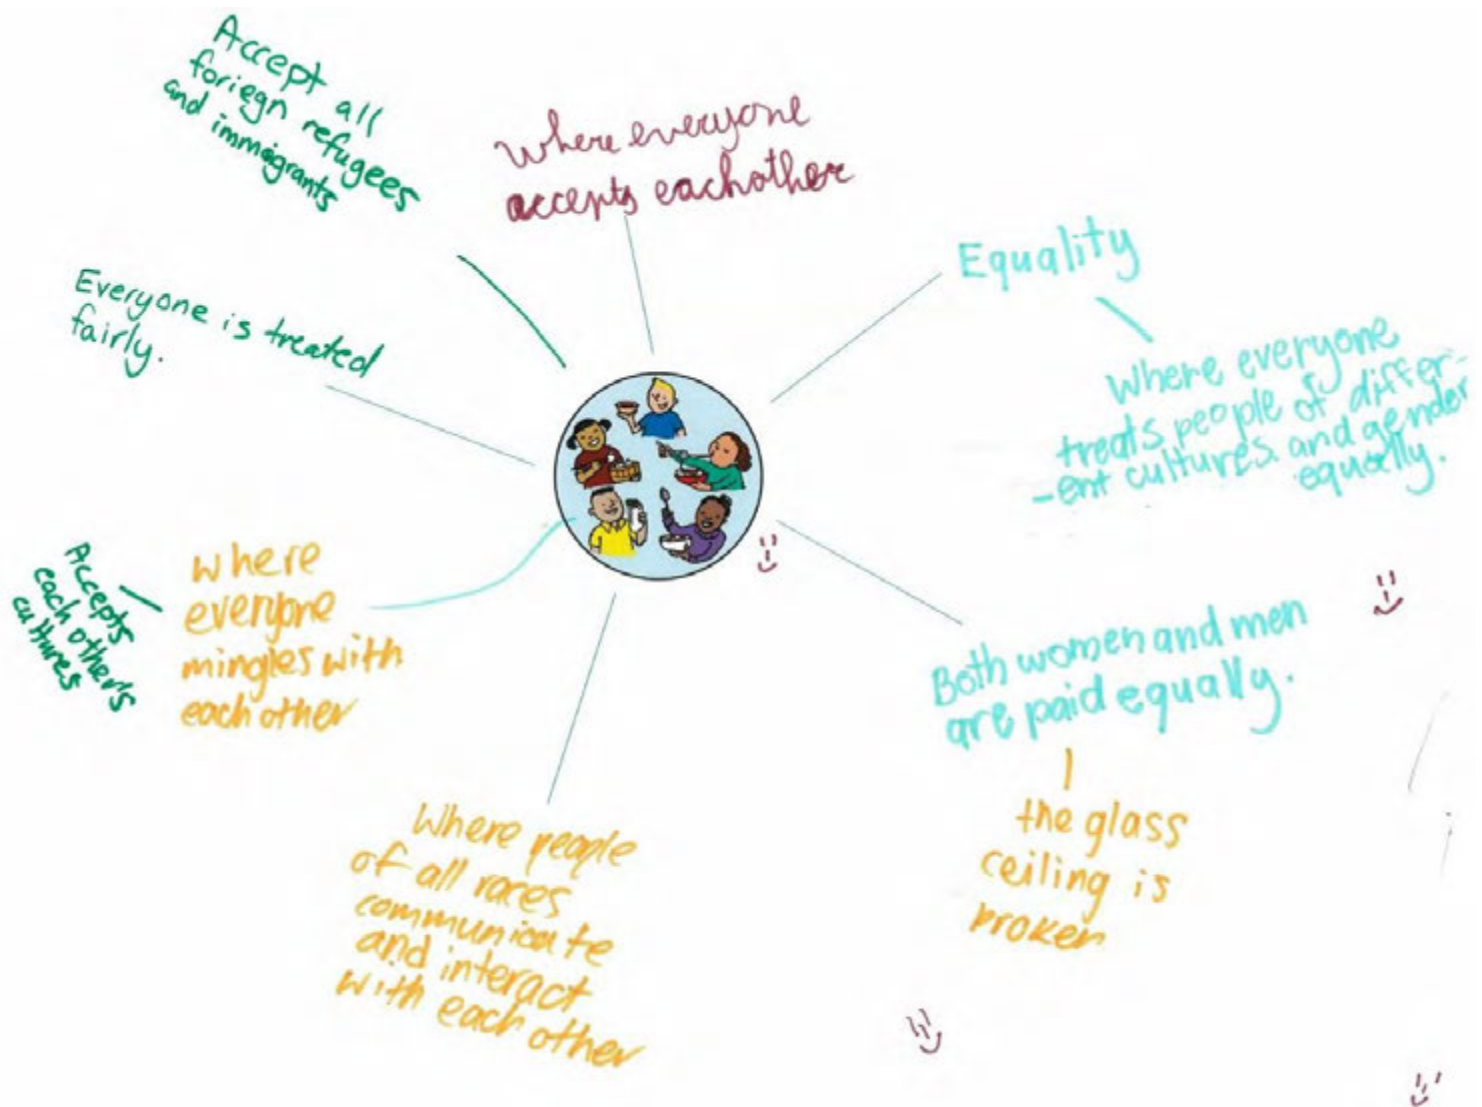 Accept all
foriegn refugees
and immigrants
Where everyone
accepts eachother
Equality
Where everyone
treats people of differ-
-ent cultures and gender
equally.
Everyone is treated
fairly.
Accepts
each other's
cultures
where
everyone
mingles with
each other
Both women and men
are paid equally.
the glass
ceiling is
broken
Where people
of all races
communicate
and interact
with each other